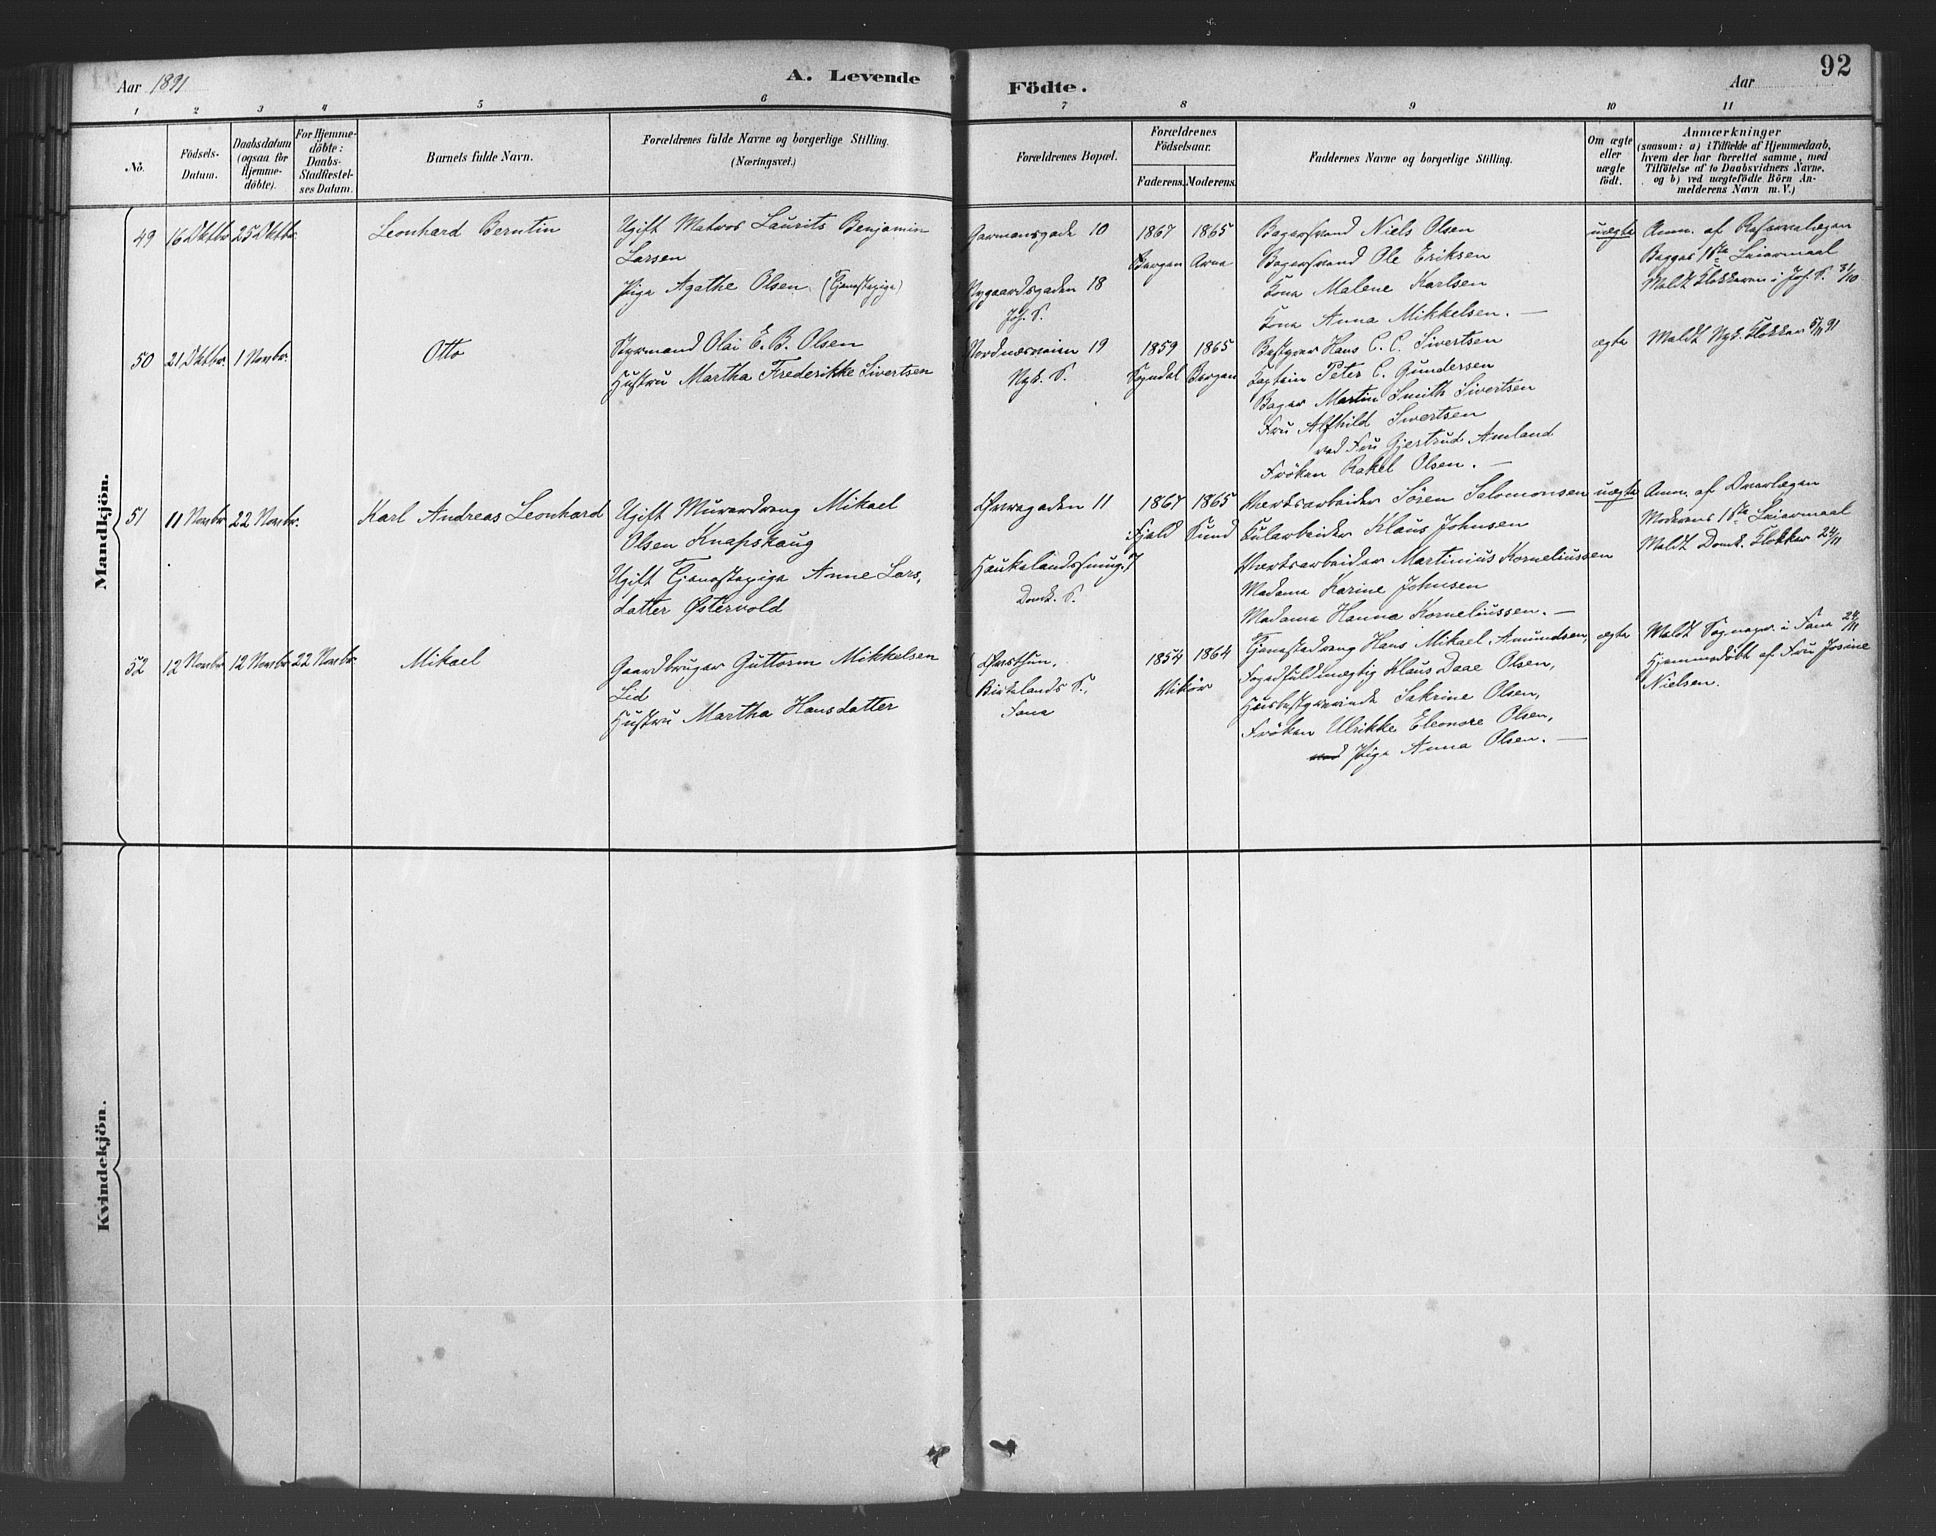 Aar 1891
A. Levende
Födte.
Aar
92
1 2 3 4 5 6 7 8 9 10 11
No.
Födsels-Datum.
Daabsdatum (ogsaa for Hjemme-döbte).
For Hjemme-döbte: Daabs-Stadfæstel-ses Datum.
Barnets fulde Navn.
Forældrenes fulde Navne og borgerlige Stilling.
(Næringsvei.)
Forældrenes Bopæl.
Forældrenes Födselsaar.
Faderens. Moderens.
Faddernes Navne og borgerlige Stilling.
Om ægte eller uægte födt.
Anmærkninger
(saasom: a) i Tilfælde af Hjemmedaab, hvem der har forrettet samme, med Tilföielse af to Daabsvidners Navne, og b) ved uægtefödte Börn An-melderens Navn m. V.)
Mandkjön.
49 16 Oktbr. 25 Oktbr. Leonhard Berntin
Ugift Matros Laurits Benjamin
Larsen
Pige Agathe Olsen (Tjenestepige)
Garmansgade 10
Nygaardsgaden 18
Joh. S.
1867 1865
Bergen Arne
Bagersvend Niels Olsen
Bagersvend Ole Eriksen
Kone Malene Karlsen
Kone Anna Mikkelsen. —
uægte
Anm. af Reservelægen
Begges 1ste Leiermaal
Meldt Klokkeren i Joh. S. 31/10
50 21 Oktbr. 1 Novbr. Otto
Styrmand Olai E. B. Olsen
Hustru Martha Frederikke Sivertsen
Nordnæsveien 19
Nyk. S.
1859 1865
Sogndal Bergen
Bestyrer Hans C. C. Sivertsen
Kaptein Peter C. Gundersen
Bager Martin Smith Sivertsen
Fru Alfhild Sivertsen
ved Fru Gjertrud Amland
Fröken Rakel Olsen. —
ægte
Meldt Nyk. Klokker 5/11 91
51 11 Novbr. 22 Novbr. Karl Andreas Leonhard
Ugift Murerdreng Mikael
Olsen Knapskaug
Ugift Tjenestepige Anne Lars-
datter Østervold
Øvregaden 11
Haukelandssmug. 7
Domk. S.
1867 1865
Fjeld Sund
Værksarbeider Sören Salomonsen
Kularbeider Klaus Johnsen
Værksarbeider Martinius Korneliussen
Madame Karine Johnsen
Madame Hanna Korneliussen. —
uægte
Anm. af Overlægen
Moderens 1ste Leiermaal
Meldt Domk. Klokker 24/11
52 12 Novbr. 12 Novbr. 22 Novbr. Mikael
Gaardbruger Guttorm Mikkelsen
Lid
Hustru Martha Hansdatter
Birkelands S.,
Fana
1854 1864
Vikör
Tjenestedreng Hans Mikael Amundsen,
Fogedfuldmægtig Klaus Daae Olsen,
Husbestyrerinde Sakrine Olsen,
Fröken Ulrikke Eleonore Olsen,
Pige Anna Olsen. —
ægte
Meldt Sognepr. i Fana 24/11
Hjemmedöbt af Fru Josine
Nielsen.
Kvindekjön.